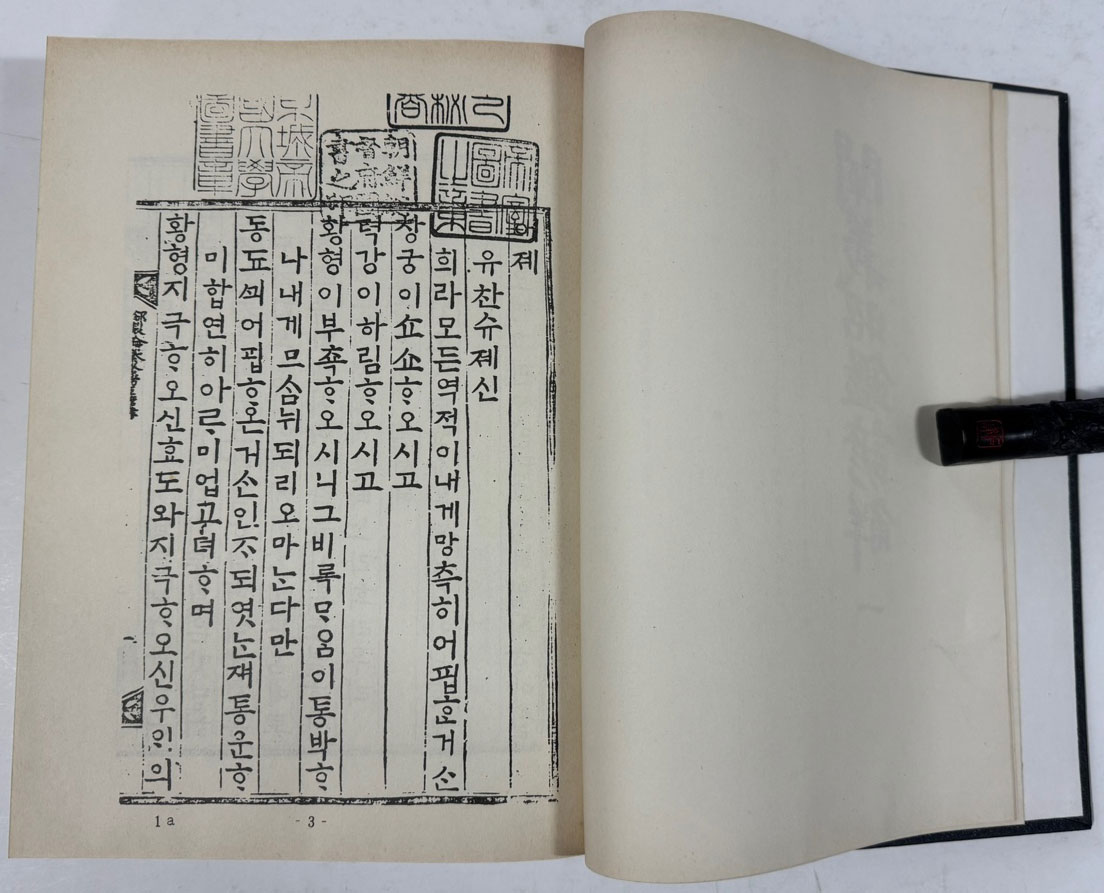 帝室圖書之章
졔
유찬슈졔신
희라모든역적이내게망측히어핍ᄒᆞ온거ᄉᆞᆫ
창궁이쇼쇼ᄒᆞ오시고
텩강이하림ᄒᆞ오시고
황형이부쵹ᄒᆞ오시니그비록ᄆᆞᄋᆞᆷ이통박ᄒᆞ
나내게므ᄉᆞᆷ뉘되리오마ᄂᆞᆫ다만
동됴싀어핍ᄒᆞ온거ᄉᆞᆫ인ᄌᆞ되엿ᄂᆞᆫ쟤통운ᄒᆞ
미합연히아ᄅᆞ미업고뎌ᄒᆞ며
황형지극ᄒᆞ오신효도와지극ᄒᆞ오신우ᄋᆡ의
1a
- 3 -